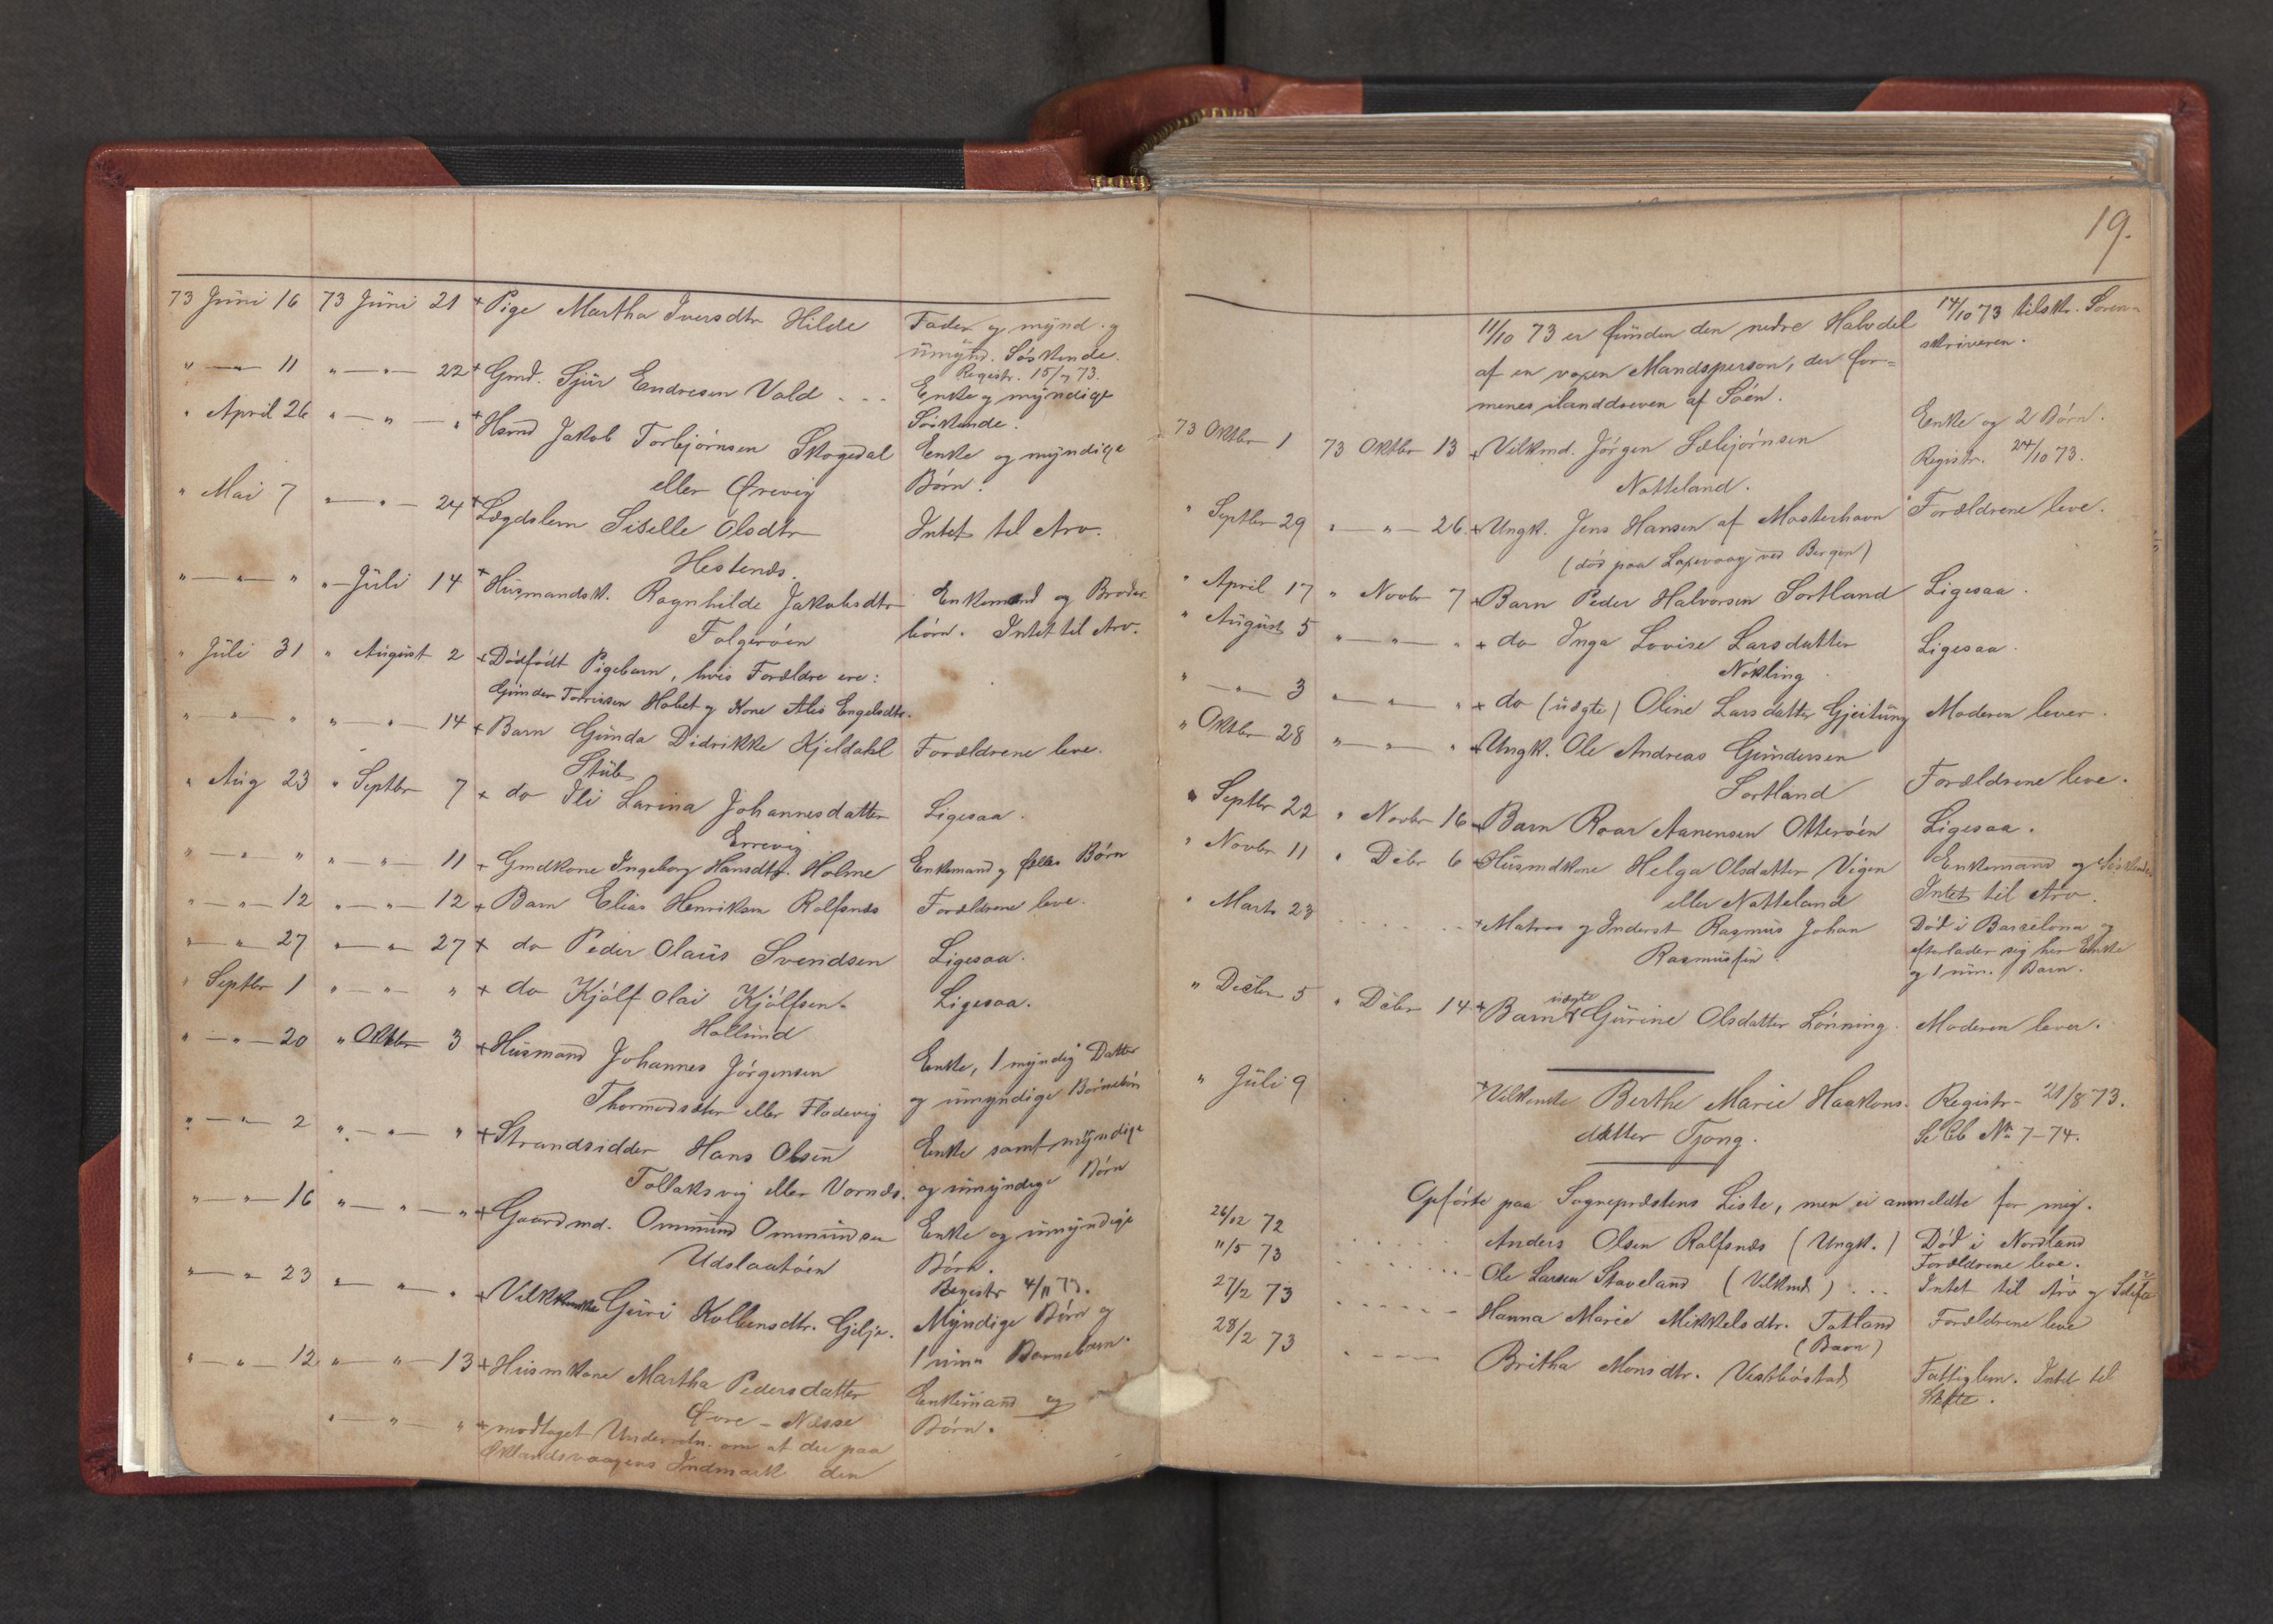 73 Juni 16 73 Juni 21 + Pige Martha Iversdtr Hilde Fader og mynd. og
umynd. Söskende.
Registr. 15/7 73.
" — " — 11 " — " — 22 + Gmd. Sjur Endresen Vold . . . Enke og myndige
Söskende.
" April 26 " — " — " + Hsmd Jakob Torbjörnsen Skogedal Enke og myndige
eller Ørevig Börn.
" Mai 7 " — " — 24 + Lægdslem Siselle Olsdtr Intet til Arv.
Hestenæs.
" — " — " " — Juli 14 + Husmandsk. Ragnhilde Jakobsdtr Enkemand og Broder
Folgeröen börn. Intet til Arv.
" Juli 31 " August 2 + Dödfödt Pigebarn, hvis Forældre ere:
Gunder Torrissen Habet og Kone Alis Engelsdtr.
" — " — " " — " — 14 + Barn Gunda Didrikke Kjeldahl Forældrene leve.
Stub
" Aug 23 " Septbr 7 + do Ili Larina Johannesdatter Ligesaa.
Errevig
" — " — " " — " — 11 + Gmdkone Ingeborg Hansdtr. Holme Enkemand og fælles Börn
" — " — 12 " — " — 12 + Barn Elias Henriksen Rolfsnæs Forældrene leve.
" — " 27 " — " — 27 + do Peder Olaüs Svendsen Ligesaa.
" Septbr 1 " — " — " + do Kjólf Olai Kjólfsen. Ligesaa.
Hollund
" — " — 20 " Oktbr 3 + Husmand Johannes Jörgensen Enke, 1 myndig Datter
Thormodsæter eller Fladevig og umyndige Börnebörn
" — " — 2 " — " — " + Strandsidder Hans Olsen Enke samt myndige
Tollaksvig eller Vornæs. og umyndige Börn
" — " — 16 " — " — " + Gaardmd. Ommund Ommundsen Enke og umyndige
Udslaatöen Börn.
Registr 4/11 73.
" — " 23 " — " — " + Vilkenke Guri Kolbensdtr. Gilje. Myndige Börn og
1 um. Barnebarn.
" — " — 12 " — " — 13 + Husmkone Martha Pedersdatter Enkemand og
Øvre - Næsse Börn.
" — " — " + modtaget Underretn. om at der paa
Øklandsvaagens Indmark den

19.
11/10 73 er funden den nedre Halvdel 14/10 73 tilskr. Soren-
af en voxen Mandsperson, der for= skriveren.
menes ilanddreven af Söen.
73 Oktbr 1 73 Oktbr 13 + Vilkmd. Jörgen Sæbjörnsen Enke og 2 Börn.
Notteland. Registr. 24/10 73.
" Septbr 29 " — " — 26. + Ungk. Jens Hansen af Mosterhavn Forældrene leve.
(död paa Laxevaag ved Bergen)
" April 17 " Novbr 7 + Barn Peder Halvorsen Sortland Ligesaa.
" August 5 " — " — " + do Inga Lovise Larsdatter Ligesaa.
Nökling
" — " — 3 " — " — " + do (uægte) Oline Larsdatter Gjeitung Moderen lever.
" Oktbr 28 " — " — " + Ungk. Ole Andreas Gundersen
Sortland Forældrene leve.
" Septbr 22 " Novbr 16 + Barn Roar Aanensen Otteröen Ligesaa.
" Novbr 11 " Debr 6 + Husmdkone Helga Olsdatter Vigen Enkemand og Söskende
eller Notteland Intet til Arv.
" Marts 23 . . . . . + Matros og Inderst Rasmus Johan Död i Barselona og
Rasmussen efterlader sig her Enke
og 1 um. Barn.
" Decbr 5 " Debr 14 + Barn uægte Gurine Olsdatter Lönning. Moderen lever.
" Juli 9 + Vilkenke Berthe Marie Haakons- Registr. 21/8 73.
datter Tjong. Se Cb No 7-74.
Opförte paa Sognepræstens Liste, men ei anmeldte for mig.
26/12 72 . . . . . Anders Olsen Rolfsnæs (Ungk.) Död i Nordland
Forældrene leve.
11/5 73 . . . . . Ole Larsen Staveland (Vilkmd) . . . Intet til Arv og Skifte
27/2 73 . . . . . Hanna Marie Mikkelsdtr. Totland Forældrene leve
(Barn)
28/2 73 . . . . Britha Monsdtr. Vestböstad Fattiglem. Intet til
Skifte.